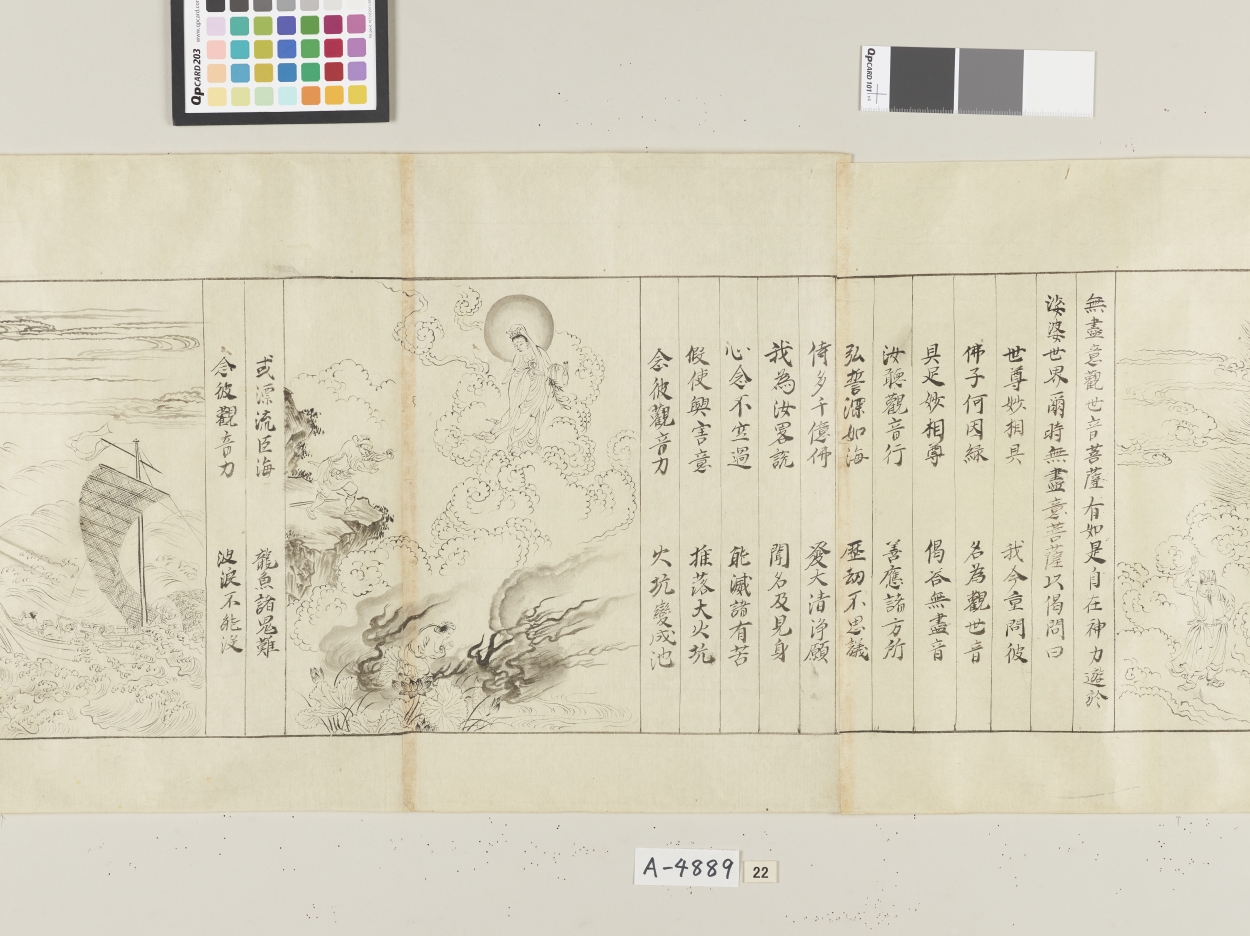 無盡意觀世音菩薩有如是自在神力遊於
娑婆世界爾時無盡意菩薩以偈問曰
世尊妙相具 我今重問彼
佛子何因緣 名為觀世音
具足妙相尊 偈答無盡音
汝聽觀音行 善應諸方所
弘誓深如海 歷劫不思議
侍多千億佛 發大清淨願
我為汝畧說 聞名及見身
心念不空過 能滅諸有苦
假使興害意 推落大火坑
念彼觀音力 火坑變成池
或漂流巨海 龍魚諸鬼難
念彼觀音力 波浪不能沒
QPCARD203
www.qpcard.com
QPCARD 101
A-4889
22